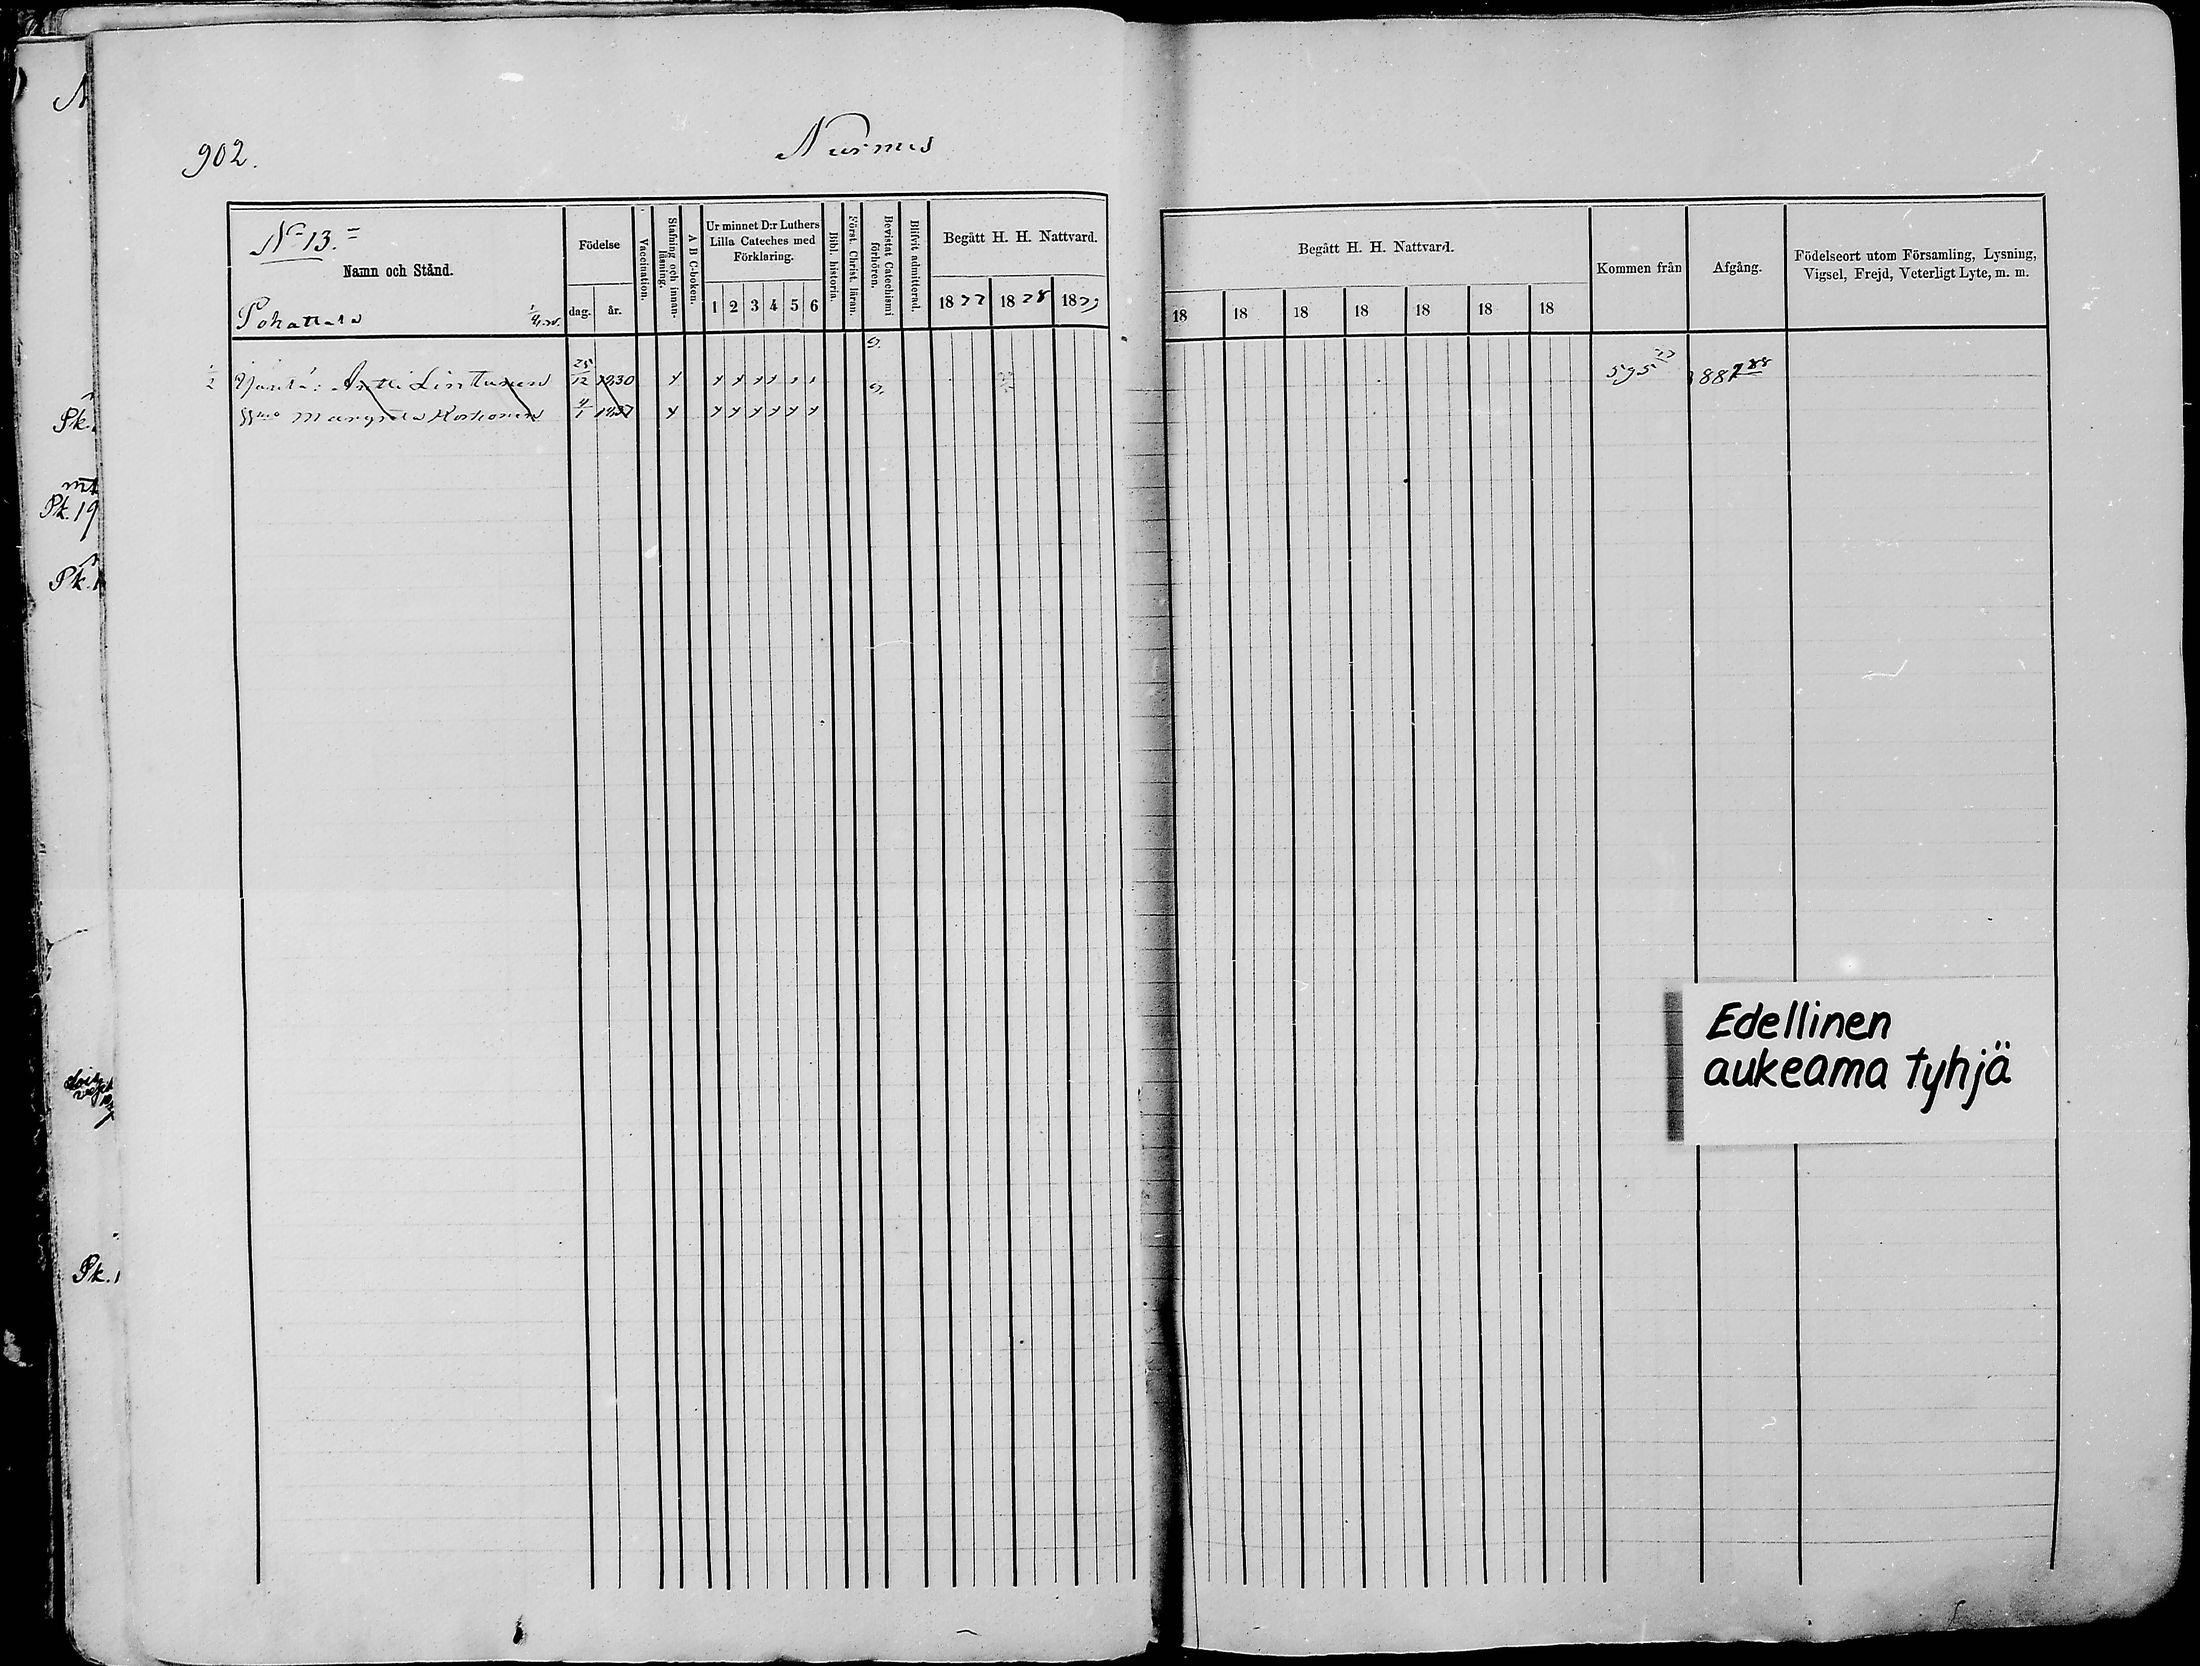 902.
Nurmes
No 13.
Namn och Stånd.
Födelse
dag.
år.
Vaccination.
Stafning och innanläsning.
A B C-boken.
Ur minnet D:r Luthers
Lilla Cateches med
Förklaring.
1 2 3 4 5 6
Bibl. historia.
Först. Christ. läran.
Bevistat Catechismi förhören.
Blifvit admitterad.
Begått H. H. Nattvard.
1877 1878 1879
Begått H. H. Nattvard.
18 18 18 18 18 18 18
Kommen från
Afgång.
Födelseort utom Församling, Lysning,
Vigsel, Frejd, Veterligt Lyte, m. m.
Antti Lintunen 25/12 1830 595 77
Margreta Korhonen 4/1 1837
Edellinen
aukeama tyhjä
Pk.
Pk. 19
Pk. 1
Pk. 1